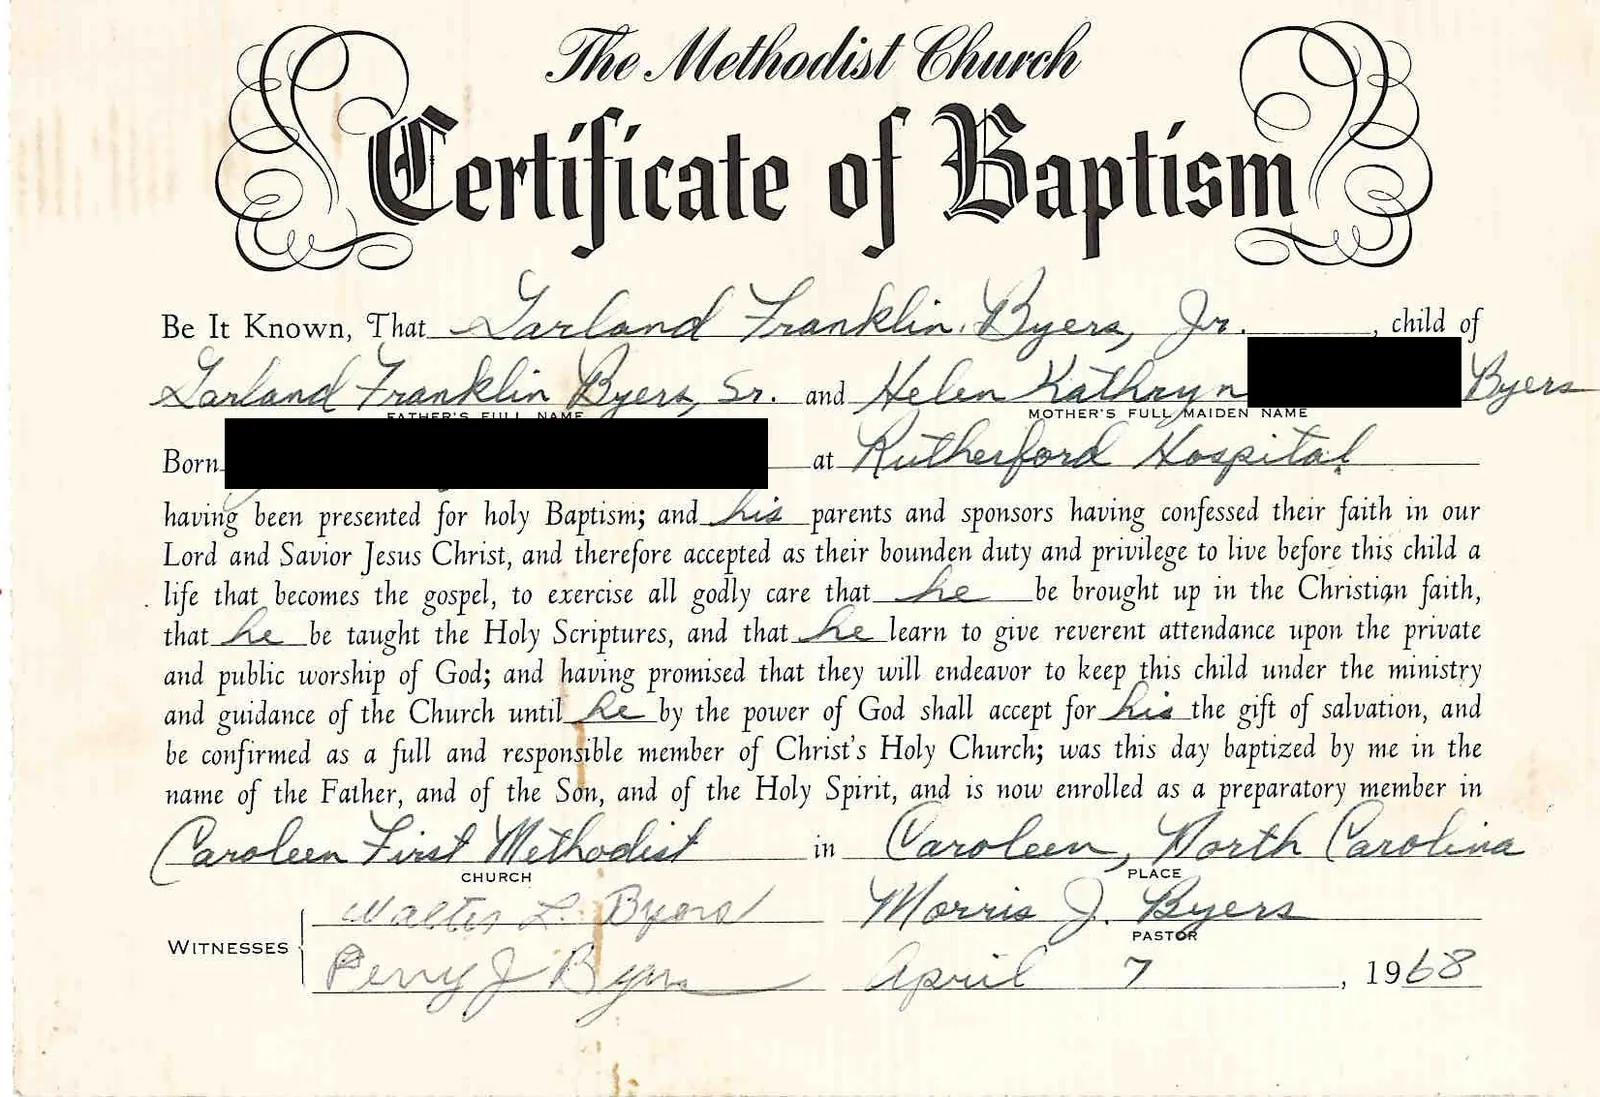 The Methodist Church
Certificate of Baptism
Be It Known, That Garland Franklin Byers, Jr. , child of
Garland Franklin Byers, Sr. and Helen Kathryn Byers
FATHER'S FULL NAME MOTHER'S FULL MAIDEN NAME
Born at Rutherford Hospital
having been presented for holy Baptism; and his parents and sponsors having confessed their faith in our
Lord and Savior Jesus Christ, and therefore accepted as their bounden duty and privilege to live before this child a
life that becomes the gospel, to exercise all godly care that he be brought up in the Christian faith,
that he be taught the Holy Scriptures, and that he learn to give reverent attendance upon the private
and public worship of God; and having promised that they will endeavor to keep this child under the ministry
and guidance of the Church until he by the power of God shall accept for his the gift of salvation, and
be confirmed as a full and responsible member of Christ's Holy Church; was this day baptized by me in the
name of the Father, and of the Son, and of the Holy Spirit, and is now enrolled as a preparatory member in
Caroleen First Methodist in Caroleen, North Carolina
CHURCH PLACE
Walter L. Byers Morris J. Byers
WITNESSES PASTOR
Perry J Byers April 7 , 1968